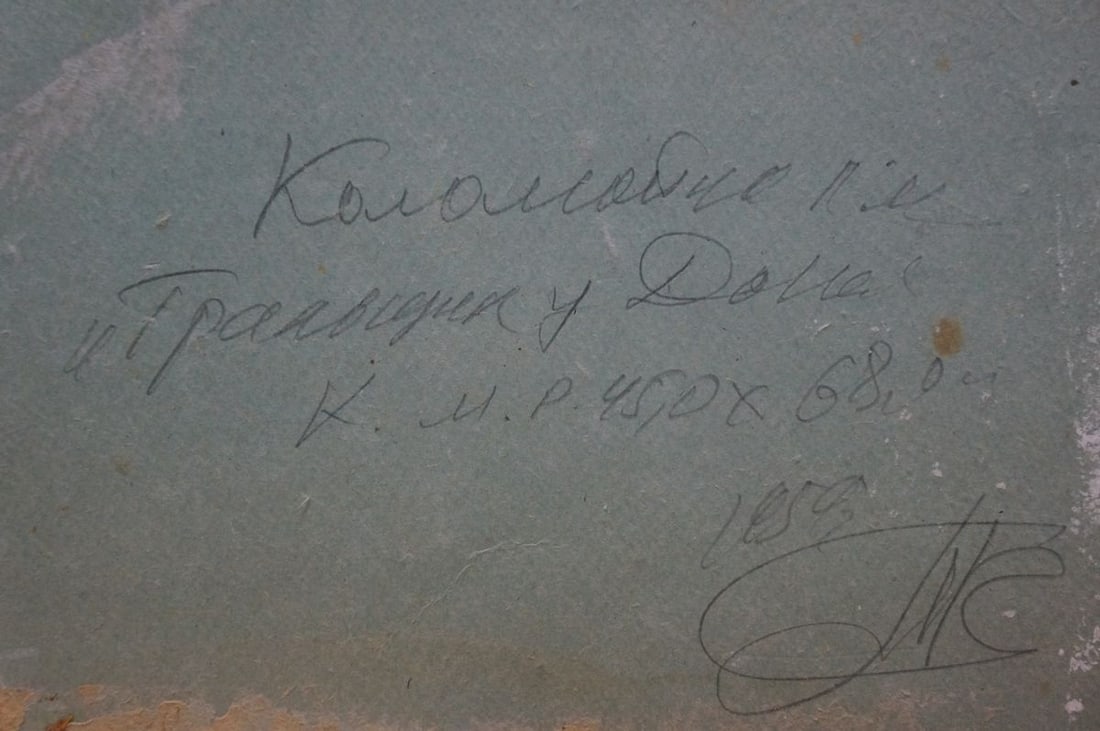 Коломойцев П. М.
"Тральщик у Дона"
К. М. Р. 45,0 х 68,0 см
1959